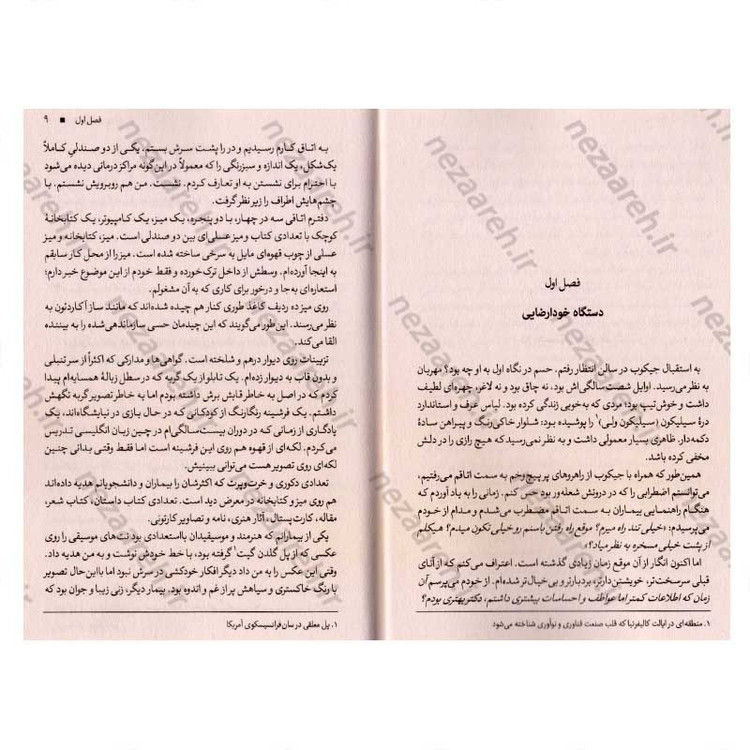 فصل اول
دستگاه خودارضایی
به استقبال جیکوب در سالن انتظار رفتم. حسم در نگاه اول به او چه بود؟ مهربان
به نظر می‌رسید. اوایل شصت سالگی‌اش بود، نه چاق بود و نه لاغر، چهره‌ای لطیف
داشت و خوش‌تیپ بود؛ مردی که به‌خوبی زندگی کرده بود. لباس عرف و استاندارد
درهٔ سیلیکون (سیلیکون ولی)۱ را پوشیده بود: شلوار خاکی‌رنگ و پیراهن سادهٔ
دکمه‌دار. ظاهری بسیار معمولی داشت و به نظر نمی‌رسید که هیچ رازی را در دلش
مخفی کرده باشد.
همین‌طور که همراه با جیکوب از راهروهای پر پیچ‌وخم به سمت اتاقم می‌رفتیم،
می‌توانستم اضطرابی را که در درونش شعله‌ور بود حس کنم. زمانی را به یاد آوردم که
هنگام راهنمایی بیماران به سمت اتاقم مضطرب می‌شدم و مدام از خودم
می‌پرسیدم: «خیلی تند راه میرم؟ موقع راه رفتن باسنم رو خیلی تکون میدم؟ هیکلم
از پشت خیلی مسخره به نظر میاد؟»
اما اکنون انگار از آن موقع زمان زیادی گذشته است. اعتراف می‌کنم که از آنای
قبلی سرسخت‌تر، خویشتن‌دارتر، بردبارتر و بی‌خیال‌تر شده‌ام. از خودم می‌پرسم آن
زمان که اطلاعات کمتر اما عواطف و احساسات بیشتری داشتم، دکتر بهتری بودم؟
۱. منطقه‌ای در ایالت کالیفرنیا که قلب صنعت فناوری و نوآوری شناخته می‌شود
فصل اول ■ ۹
به اتاق کارم رسیدیم و در را پشت سرش بستم. یکی از دو صندلی کاملاً
یک‌شکل، یک اندازه و سبزرنگی را که معمولاً در این‌گونه مراکز درمانی دیده می‌شود
با احترام برای نشستن به او تعارف کردم. نشست. من هم روبرویش نشستم. با
چشم‌هایش اطراف را زیر نظر گرفت.
دفترم اتاقی سه در چهار، با دو پنجره، یک میز، یک کامپیوتر، یک کتابخانهٔ
کوچک با تعدادی کتاب و میز عسلی‌ای بین دو صندلی است. میز، کتابخانه و میز
عسلی از چوب قهوه‌ای مایل به سرخی ساخته شده است. میز را از محل کار سابقم
به اینجا آورده‌ام. وسطش از داخل ترک خورده و فقط خودم از این موضوع خبر دارم؛
استعاره‌ای به‌جا و درخور برای کاری که به آن مشغولم.
روی میز ده ردیف کاغذ طوری کنار هم چیده شده‌اند که مانند ساز آکاردئون به
نظر می‌رسند. این طور می‌گویند که این چیدمان حسی سازماندهی‌شده را به بیننده
القا می‌کند.
تزیینات روی دیوار درهم و شلخته است. گواهی‌ها و مدارکی که اکثراً از سر تنبلی
و بدون قاب به دیوار زده‌ام. یک تابلو از یک گربه که در سطل زبالهٔ همسایه‌ام پیدا
کردم که در اصل به خاطر قابش برش داشته بودم اما به خاطر تصویر گربه نگهش
داشتم. یک فرشینه رنگارنگ از کودکانی که در حال بازی در نیایشگاه‌اند، یک
یادگاری از زمانی که در دوران بیست‌سالگی‌ام در چین زبان انگلیسی تدریس
می‌کردم. لکه‌ای از قهوه هم روی این فرشینه است اما فقط وقتی بدانی چنین
لکه‌ای روی تصویر هست می‌توانی ببینیش.
تعدادی دکوری و خرت‌وپرت که اکثرشان را بیماران و دانشجویانم هدیه داده‌اند
هم روی میز و کتابخانه در معرض دید است. تعدادی کتاب داستان، کتاب شعر،
مقاله، کارت‌پستال، آثار هنری، نامه و تصاویر کارتونی.
یکی از بیمارانم که هنرمند و موسیقیدان بااستعدادی بود نت‌های موسیقی را روی
عکسی که از پل گلدن گیت۱ گرفته بود، با خط خودش نوشت و به من هدیه داد.
وقتی این عکس را به من داد دیگر افکار خودکشی در سرش نبود اما بااین‌حال تصویر
با رنگ خاکستری و سیاهش پر از غم و اندوه بود. بیمار دیگر، زنی زیبا و جوان بود که
۱. پل معلقی در سان‌فرانسیسکوی آمریکا
nezaareh.ir